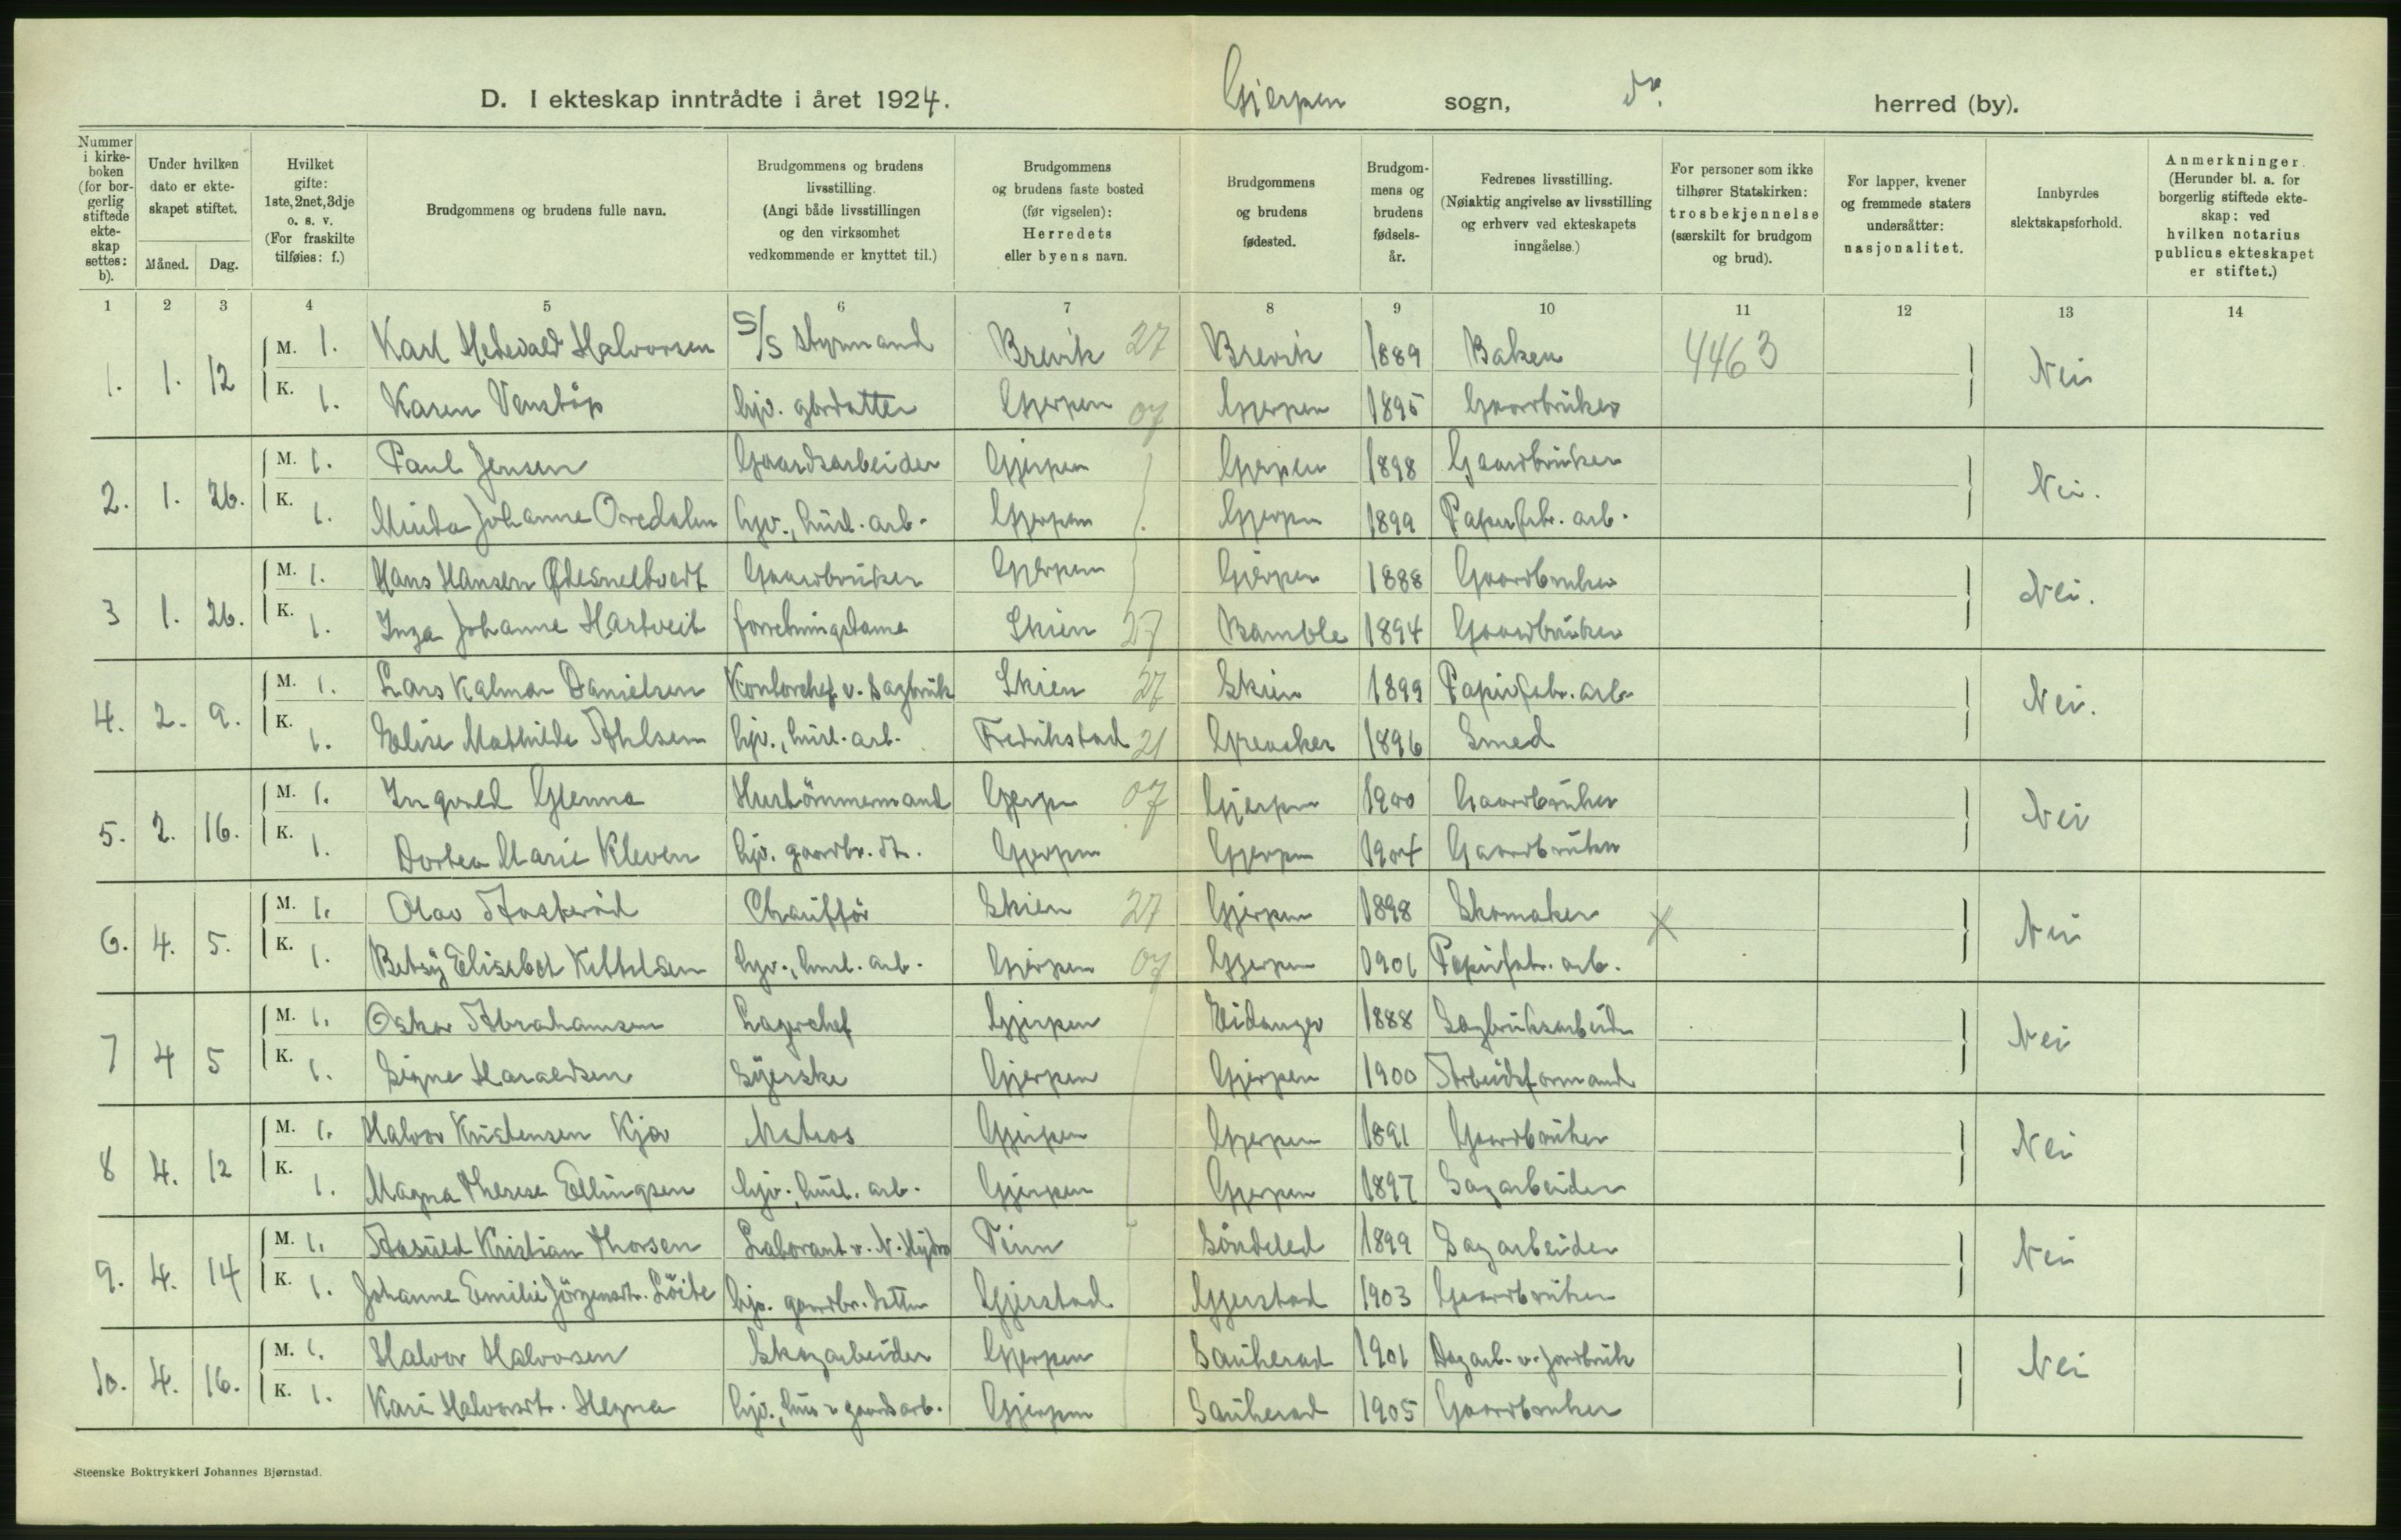 D. I ekteskap inntrådte i året 1924. Gjerpen sogn, do. herred (by).
Nummer i kirkeboken (for borgerlig stiftede ekteskap settes: b).
Under hvilken dato er ekteskapet stiftet.
Måned. Dag.
Hvilket gifte: 1ste, 2net, 3dje o. s. v. (For fraskilte tilføies: f.)
Brudgommens og brudens fulle navn.
Brudgommens og brudens livsstilling. (Angi både livsstillingen og den virksomhet vedkommende er knyttet til.)
Brudgommens og brudens faste bosted (før vigselen): Herredets eller byens navn.
Brudgommens og brudens fødested.
Brudgommens og brudens fødselsår.
Fedrenes livsstilling. (Nøiaktig angivelse av livsstilling og erhverv ved ekteskapets inngåelse.)
For personer som ikke tilhører Statskirken: trosbekjennelse (særskilt for brudgom og brud).
For lapper, kvener og fremmede staters undersåtter: nasjonalitet.
Innbyrdes slektskapsforhold.
Anmerkninger. (Herunder bl. a. for borgerlig stiftede ekteskap: ved hvilken notarius publicus ekteskapet er stiftet.)
1 2 3 4 5 6 7 8 9 10 11 12 13 14
1. 1. 12 M. 1. Karl Hedevald Halvorsen S/S styrmand Brevik 27 Brevik 1889 Baker 4463 Nei
K. 1. Karen Venstøp hjv. gbrdatter Gjerpen 07 Gjerpen 1895 Gaardbruker
2. 1. 26. M. 1. Paul Jensen Gaardsarbeider Gjerpen Gjerpen 1898 Gaardbruker Nei.
K. 1. Minda Johanne Ovredalen hjv., husl. arb. Gjerpen Gjerpen 1899 Papirfabr. arb.
3 1. 26. M. 1. Hans Hansen Gaardbruker Gjerpen Gjerpen 1888 Gaardbruker Nei.
K. 1. Inga Johanne Hartveit forretningsdame Skien 27 Bamble 1894 Gaardbruker
4. 2. 9. M. 1. Lars Kalmar Danielsen Kontorchef v. Sagbruk Skien 27 Skien 1899 Papirfabr. arb. Nei.
K. 1. Elise Mathilde Ahlsen hjv., husl. arb. Fredrikstad 21 Greaaker 1896 Smed
5. 2. 16. M. 1. Ingvald Glenna Hustömmermand Gjerpen 07 Gjerpen 1900 Gaardbruker Nei
K. 1. Dortea Marie Kleven hjv. gaardbr. dt. Gjerpen Gjerpen 1904 Gaardbruker
6. 4. 5. M. 1. Olav Aaskeröd Chaufför Skien 27 Gjerpen 1898 Skomaker X Nei
K. 1. Betsy Elisabet Kittilsen hjv., husl. arb. Gjerpen 07 Gjerpen 1901 Papirfabr. arb.
7 4 5 M. 1. Oskar Abrahamsen Lagerchef Gjerpen Eidanger 1888 Sagbruksarbeider Nei
K. 1. Signe Haraldsen Syerske Gjerpen Gjerpen 1900 Arbeidsformand
8 4. 12 M. 1. Halvor Kristensen Kjær Matros Gjerpen Gjerpen 1891 Gaardbruker Nei
K. 1. Magna Therese Ellingsen hjv., husl. arb. Gjerpen Gjerpen 1897 Sagarbeider
9. 4. 14 M. 1. Aasuld Kristian Thorsen Laborant v. N. Hydro Tinn Söndeled 1899 Sagarbeider Nei
K. 1. Johanne Emilie Jörgensdtr. Löite hjv. gaardbr. datter Gjerstad Gjerstad 1903 Gaardbruker
10. 4. 16. M. 1. Halvor Halvorsen Skogarbeider Gjerpen Sauherad 1901 Dagarb. v. jordbruk Nei
K. 1. Kari Halvorsdtr. Hegna hjv., hus & gaardsarb. Gjerpen Sauherad 1905 Gaardbruker
Steenske Boktrykkeri Johannes Bjørnstad.